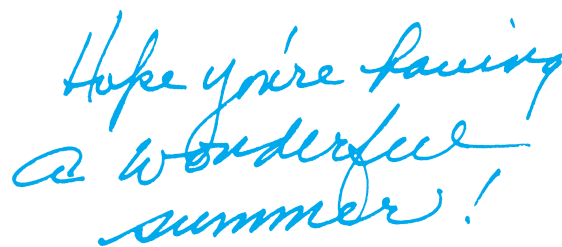 Hope you're having
a wonderful
summer!